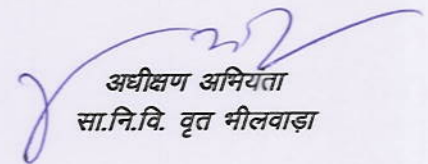 अधीक्षण अभियता
सा.नि.वि. वृत भीलवाड़ा